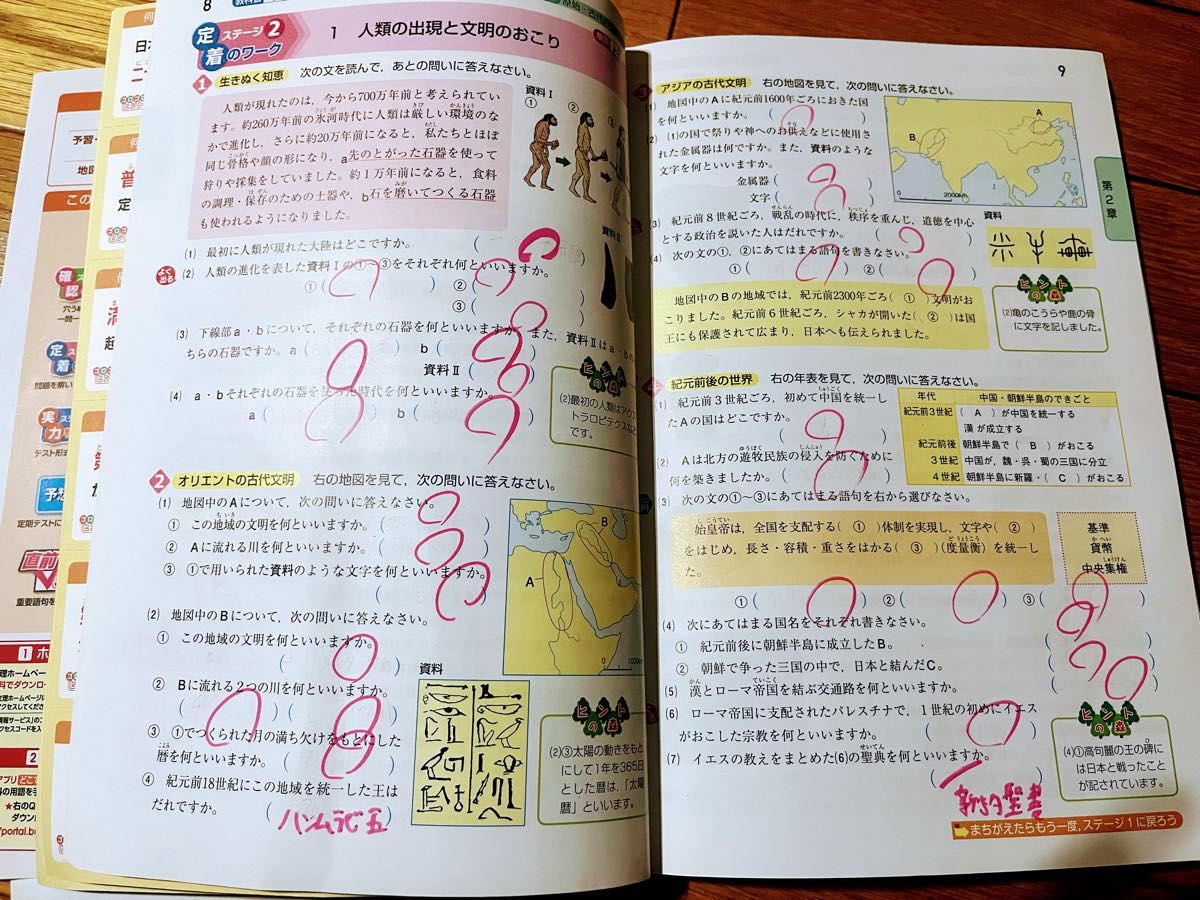 8
教科書
定着のワーク
ステージ2
1 人類の出現と文明のおこり
1 生きぬく知恵 次の文を読んで，あとの問いに答えなさい。
人類が現れたのは，今から700万年前と考えられてい
ます。約260万年前の氷河時代に人類は厳しい環境のな
かで進化し，さらに約20万年前になると，私たちとほぼ
同じ骨格や顔の形になり，a先のとがった石器を使って
狩りや採集をしていました。約1万年前になると，食料
の調理・保存のための土器や，b石を磨いてつくる石器
も使われるようになりました。
資料Ⅰ
① ②
(1) 最初に人類が現れた大陸はどこですか。
よく出る
(2) 人類の進化を表した資料Ⅰの①〜③をそれぞれ何といいますか。
①( ) ②( )
③( )
資料Ⅱ
(3) 下線部a・bについて，それぞれの石器を何といいますか。また，資料Ⅱはa・bの
ちらの石器ですか。 a( ) b( )
資料Ⅱ( )
(4) a・bそれぞれの石器を使った時代を何といいますか。
a( ) b( )
ヒントの森
(2)最初の人類はアウス
トラロピテクスなど
です。
2 オリエントの古代文明 右の地図を見て，次の問いに答えなさい。
(1) 地図中のAについて，次の問いに答えなさい。
① この地域の文明を何といいますか。
② Aに流れる川を何といいますか。
③ ①で用いられた資料のような文字を何といいますか。
(2) 地図中のBについて，次の問いに答えなさい。
① この地域の文明を何といいますか。
② Bに流れる2つの川を何といいますか。
③ ①でつくられた月の満ち欠けをもとにした
暦を何といいますか。
④ 紀元前18世紀にこの地域を統一した王は
だれですか。
ハンムラビ王
A
B
1000km
資料
ヒントの森
(2)③太陽の動きをもと
にして1年を365日
とした暦は，「太陽
暦」といいます。
9
第2章
3 アジアの古代文明 右の地図を見て，次の問いに答えなさい。
(1) 地図中のAに紀元前1600年ごろにおきた国
を何といいますか。
(2) (1)の国で祭りや神へのお供えなどに使用さ
れた金属器は何ですか。また，資料のような
文字を何といいますか。
金属器( )
文字( )
(3) 紀元前8世紀ごろ，戦乱の時代に，秩序を重んじ，道徳を中心
とする政治を説いた人はだれですか。
(4) 次の文の①，②にあてはまる語句を書きなさい。
①( ) ②( )
地図中のBの地域では，紀元前2300年ごろ( ① )文明がお
こりました。紀元前6世紀ごろ，シャカが開いた( ② )は国
王にも保護されて広まり，日本へも伝えられました。
A
B
2000km
資料
ヒントの森
(2)亀のこうらや鹿の骨
に文字を記しました。
4 紀元前後の世界 右の年表を見て，次の問いに答えなさい。
(1) 紀元前3世紀ごろ，初めて中国を統一し
たAの国はどこですか。
(2) Aは北方の遊牧民族の侵入を防ぐために
何を築きましたか。
年代 中国・朝鮮半島のできごと
紀元前3世紀 ( A )が中国を統一する
漢が成立する
紀元前後 朝鮮半島で( B )がおこる
3世紀 中国が，魏・呉・蜀の三国に分立
4世紀 朝鮮半島に新羅・( C )がおこる
(3) 次の文の①〜③にあてはまる語句を右から選びなさい。
始皇帝は，全国を支配する( ① )体制を実現し，文字や( ② )
をはじめ，長さ・容積・重さをはかる( ③ )(度量衡)を統一し
た。
基準
貨幣
中央集権
①( ) ②( ) ③( )
(4) 次にあてはまる国名をそれぞれ書きなさい。
① 紀元前後に朝鮮半島に成立したB。
② 朝鮮で争った三国の中で，日本と結んだC。
(5) 漢とローマ帝国を結ぶ交通路を何といいますか。
(6) ローマ帝国に支配されたパレスチナで，1世紀の初めにイエス
がおこした宗教を何といいますか。
(7) イエスの教えをまとめた(6)の聖典を何といいますか。
新約聖書
ヒントの森
(4)①高句麗の王の碑に
は日本と戦ったこと
が記されています。
まちがえたらもう一度，ステージ1に戻ろう